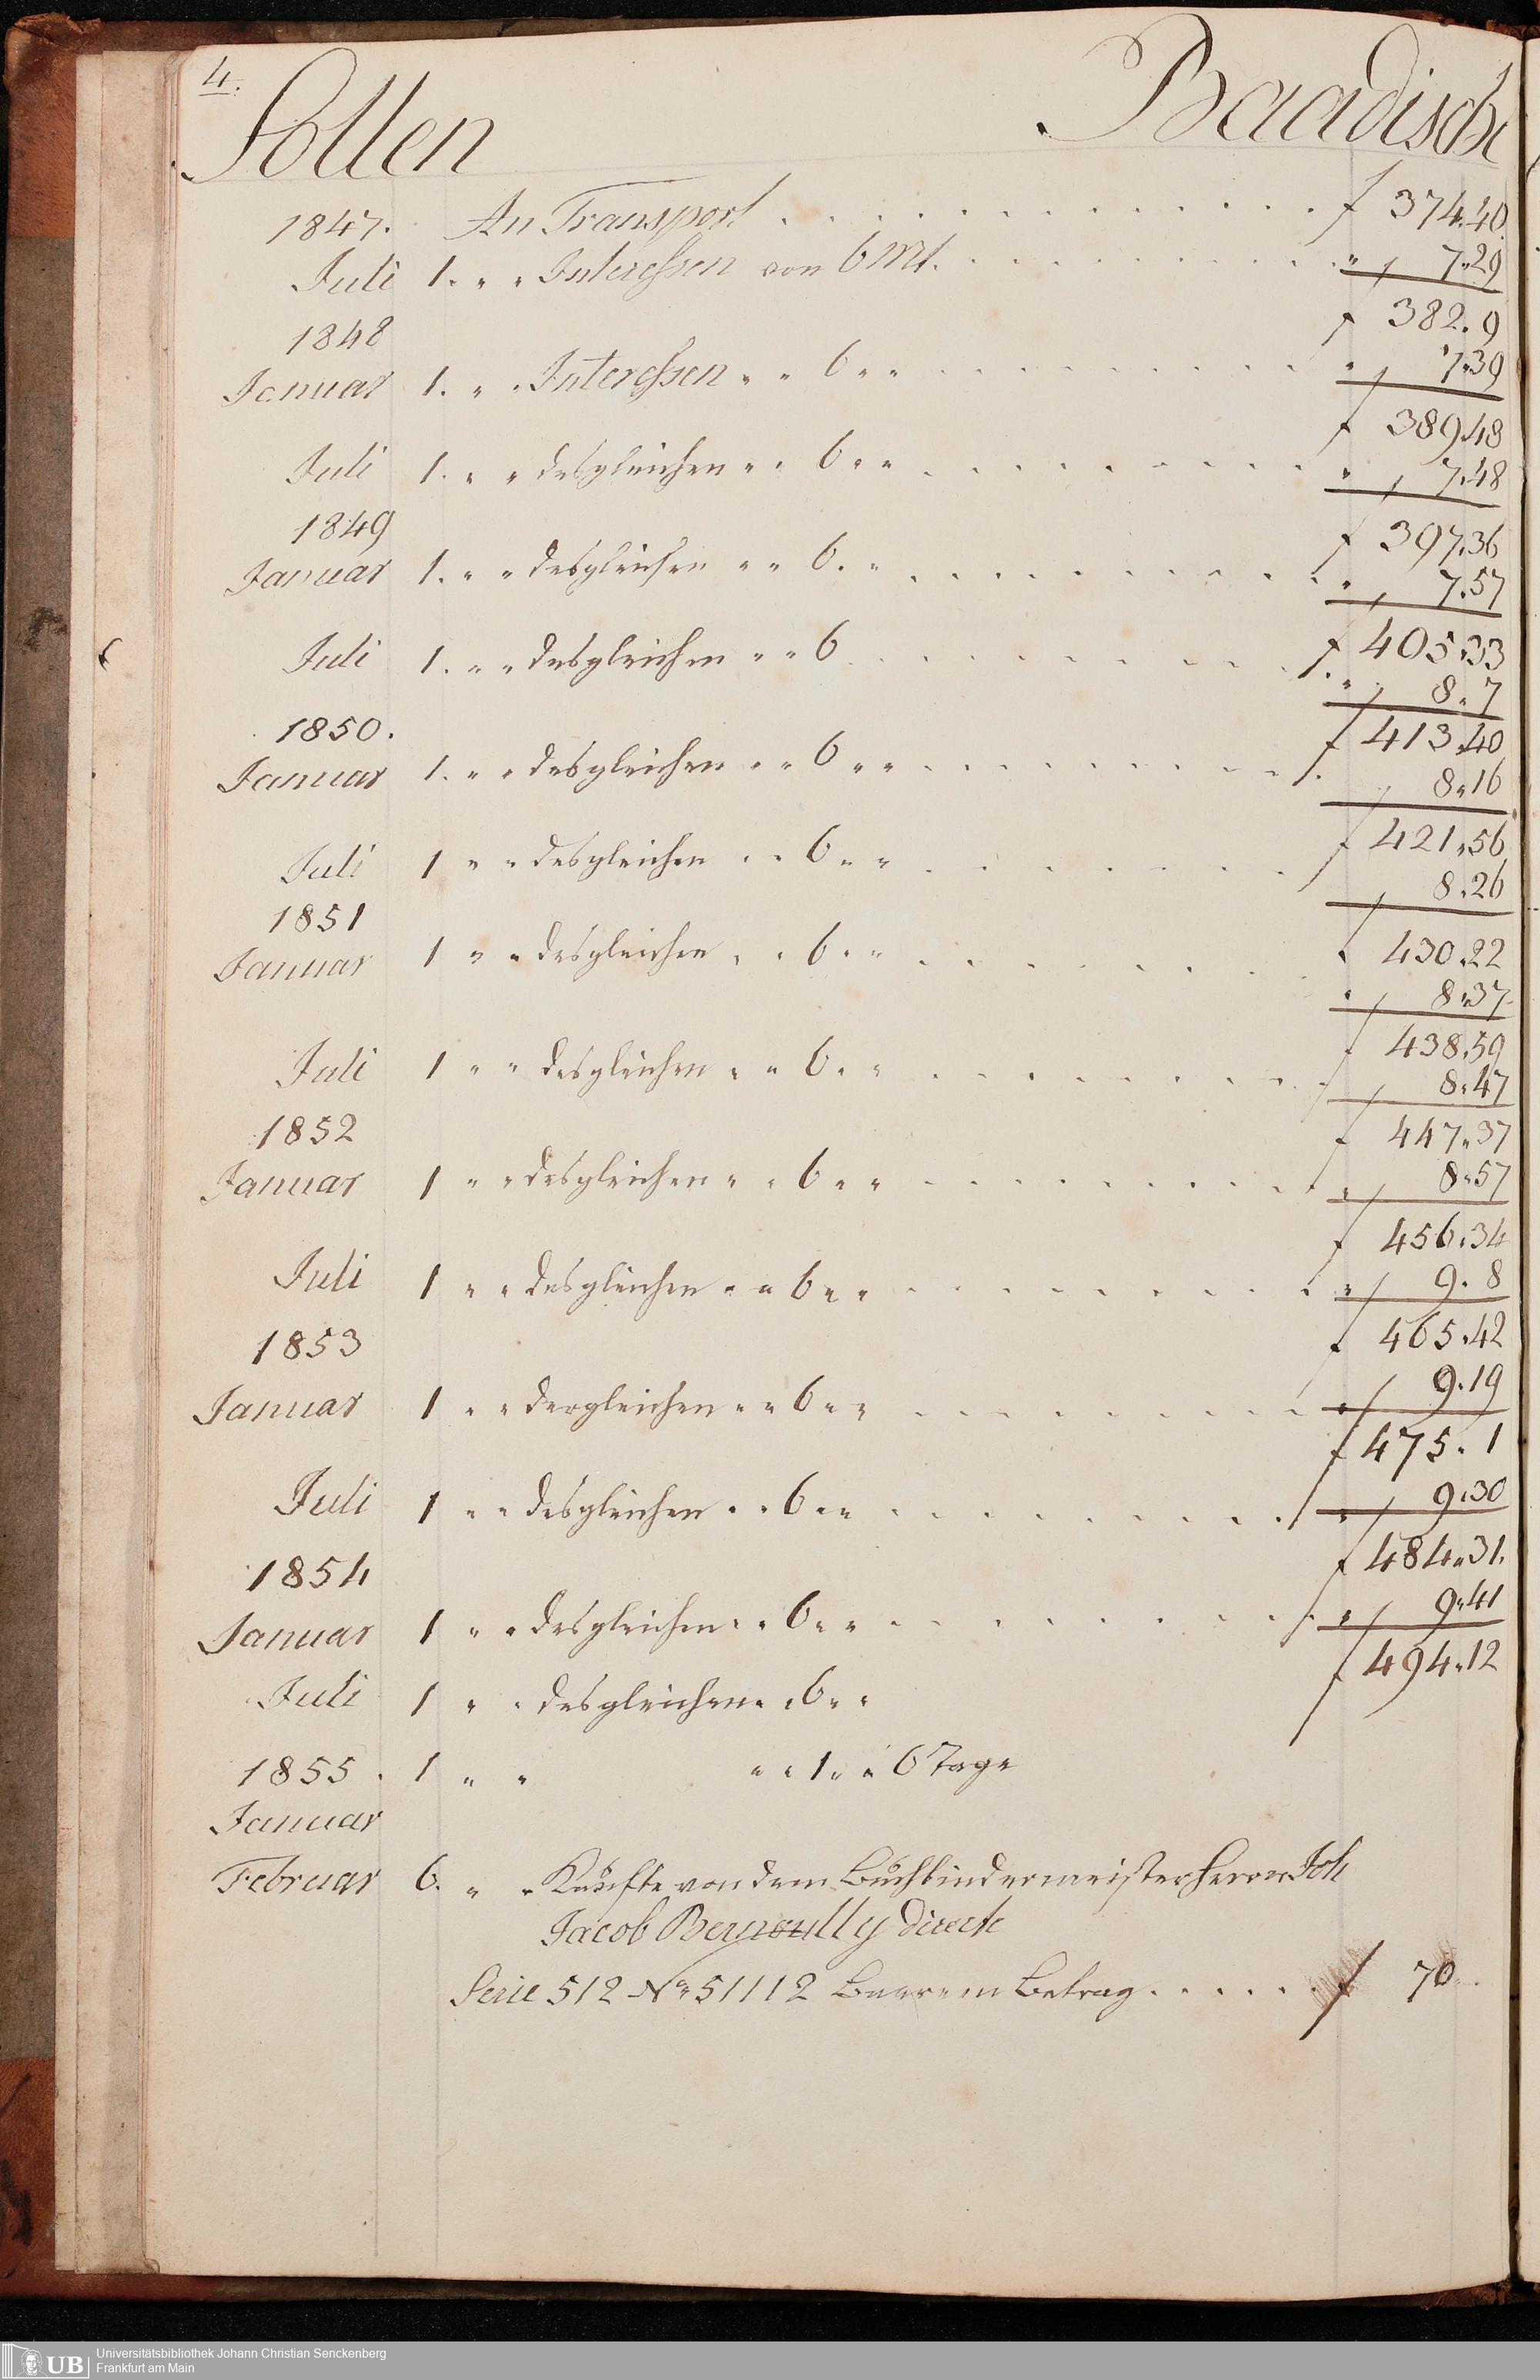 4.
Sollen Baadische
1847. An Transport . . . . . . . . . . . . f 374.40.
Juli 1. " " Interessen von 6 Mt. . . . . . . . . . . " 7"29
f 382.9
1848
Januar 1. " " Interessen " " 6 " " . . . . . . . . . " 7"39
f 389.48
Juli 1. " " desgleichen " " 6 " " . . . . . . . . . " 7.48
1849
f 397.36
Januar 1. " " desgleichen " " 6. " . . . . . . . . . " 7.57
f 405.33
Juli 1. " " desgleichen " " 6 . . . . . . . . . " 8.7
1850.
f 413.40
Januar 1. " " desgleichen " " 6 " " . . . . . . . . . 8"16
f 421"56
Juli 1 " " desgleichen " " 6 " " . . . . . . . 8.26
1851
Januar 1 " " desgleichen " " 6 " " . . . . . . . " 430.22
" 8"37
f 438.59
Juli 1 " " desgleichen " " 6 " " . . . . . . . . . 8.47
1852
f 447"37
Januar 1 " " desgleichen " " 6 " " . . . . . . . . . " 8"57
f 456.34
Juli 1 " " desgleichen " " 6 " " . . . . . . . . . " 9.8
1853
f 465.42
9.19
Januar 1 " " dergleichen " " 6 " " . . . . . . . . . "
f 475.1
Juli 1 " " desgleichen " " 6 " " . . . . . . . . . " 9.30
1854
f 484"31.
Januar 1 " " desgleichen " " 6 " " . . . . . . . . . " 9"41
f 494"12
Juli 1 " " desgleichen " " 6 " "
1855. 1 " " " " 1 " " 6 Tage
Januar
Februar 6. " " Kaufte von dem Buchbindermeister Herrn Joh
Jacob Bernoully directe
Serie 512 No 51112 Betrag . . . . . . f 70.
Universitätsbibliothek Johann Christian Senckenberg
UB Frankfurt am Main